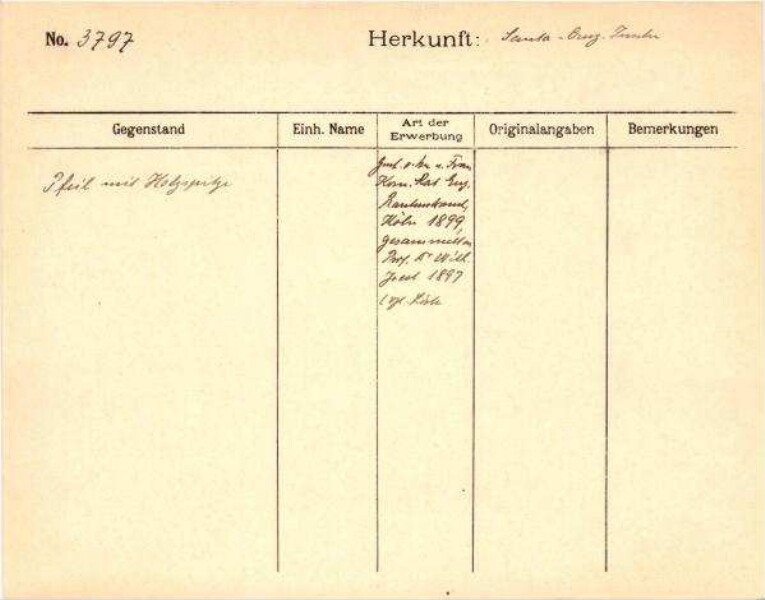 No. 3797
Herkunft: Santa-Cruz-Inseln
Gegenstand
Einh. Name
Art der Erwerbung
Originalangaben
Bemerkungen
Pfeil mit Holzspitze
u. Frau
Kom. Rat Eug.
Rautenstrauch,
Köln 1899,
gesammelt v.
Prof. Dr Wilh.
Joest 1897
(vgl. Liste